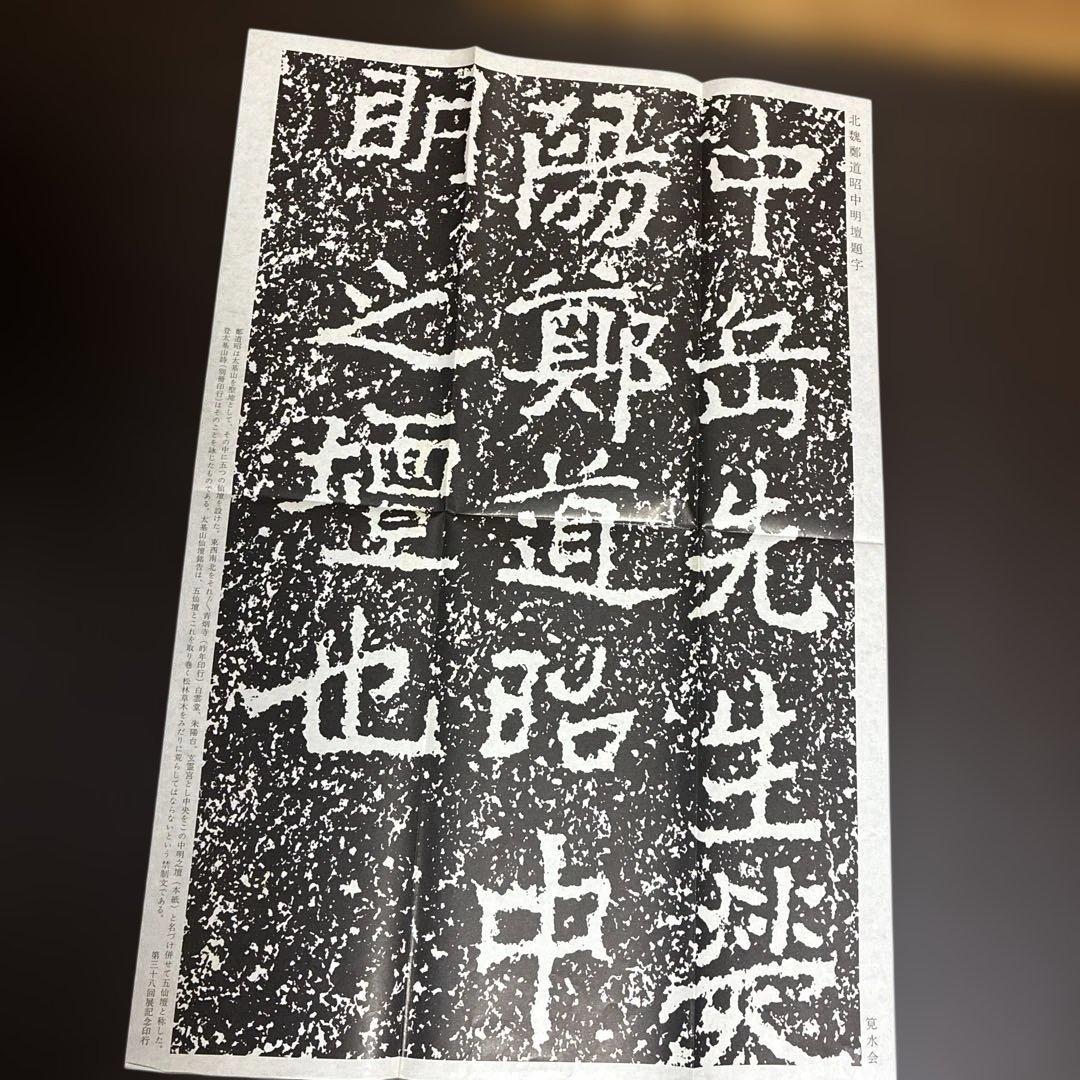 北魏鄭道昭中明壇題字
中岳先生熒
陽鄭道昭中
明之壇也
鄭道昭は太基山を聖地として、その中に五つの仙壇を設けた。東西南北をそれ〲青烟寺（昨年印行）白雲堂、朱陽台、玄霊宮とし中央をこの中明之壇（本紙）と名づけ併せて五仙壇と称した。
登太基山詩（別冊印行）はそのことを詠じたものである。太基山仙壇銘告は、五仙壇とこれを取り巻く松林草木をみだりに荒らしてはならないという禁制文である。
第三十八回展記念印行
筧水会